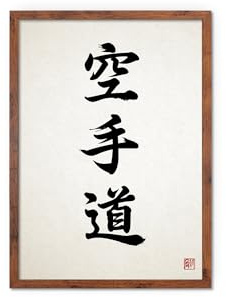 空手道